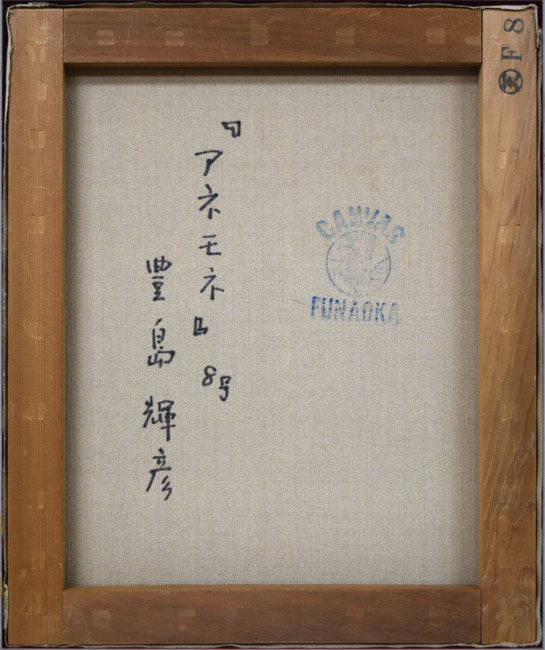 『アネモネ』 8号
豊島輝彦
CANVAS
FUNAOKA
F8